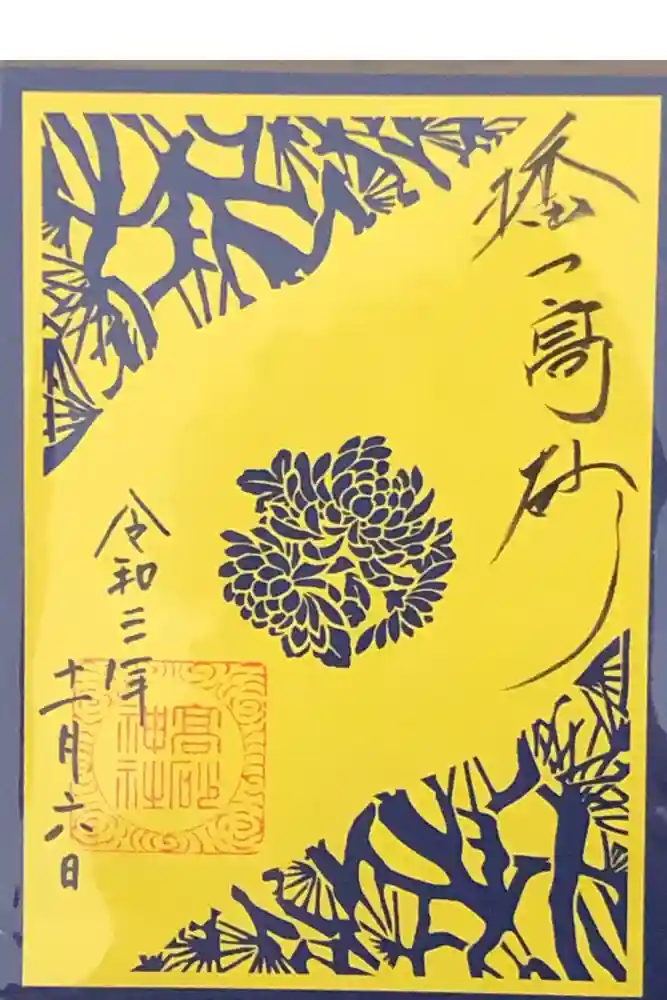 高砂
令和三年
十一月六日
高砂
神社